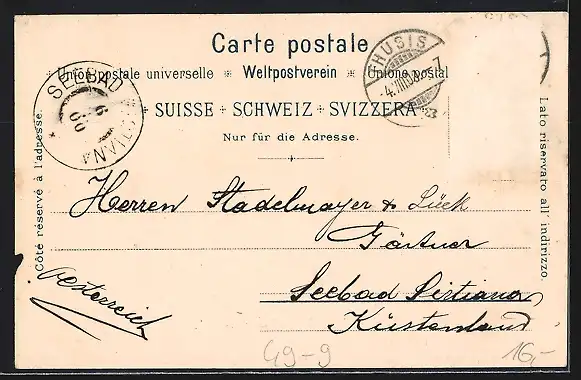 Carte postale
Union postale universelle * Weltpostverein * Unione postal
SUISSE + SCHWEIZ + SVIZZERA
Nur für die Adresse.
THUSIS
SEEBAD
Côté réservé à l'adresse.
Lato riservato all' indirizzo.
Herren Stadelmayer & Lück
Gärtner
Seebad Sistiana
Küstenland
Oesterreich
49-9
16,-